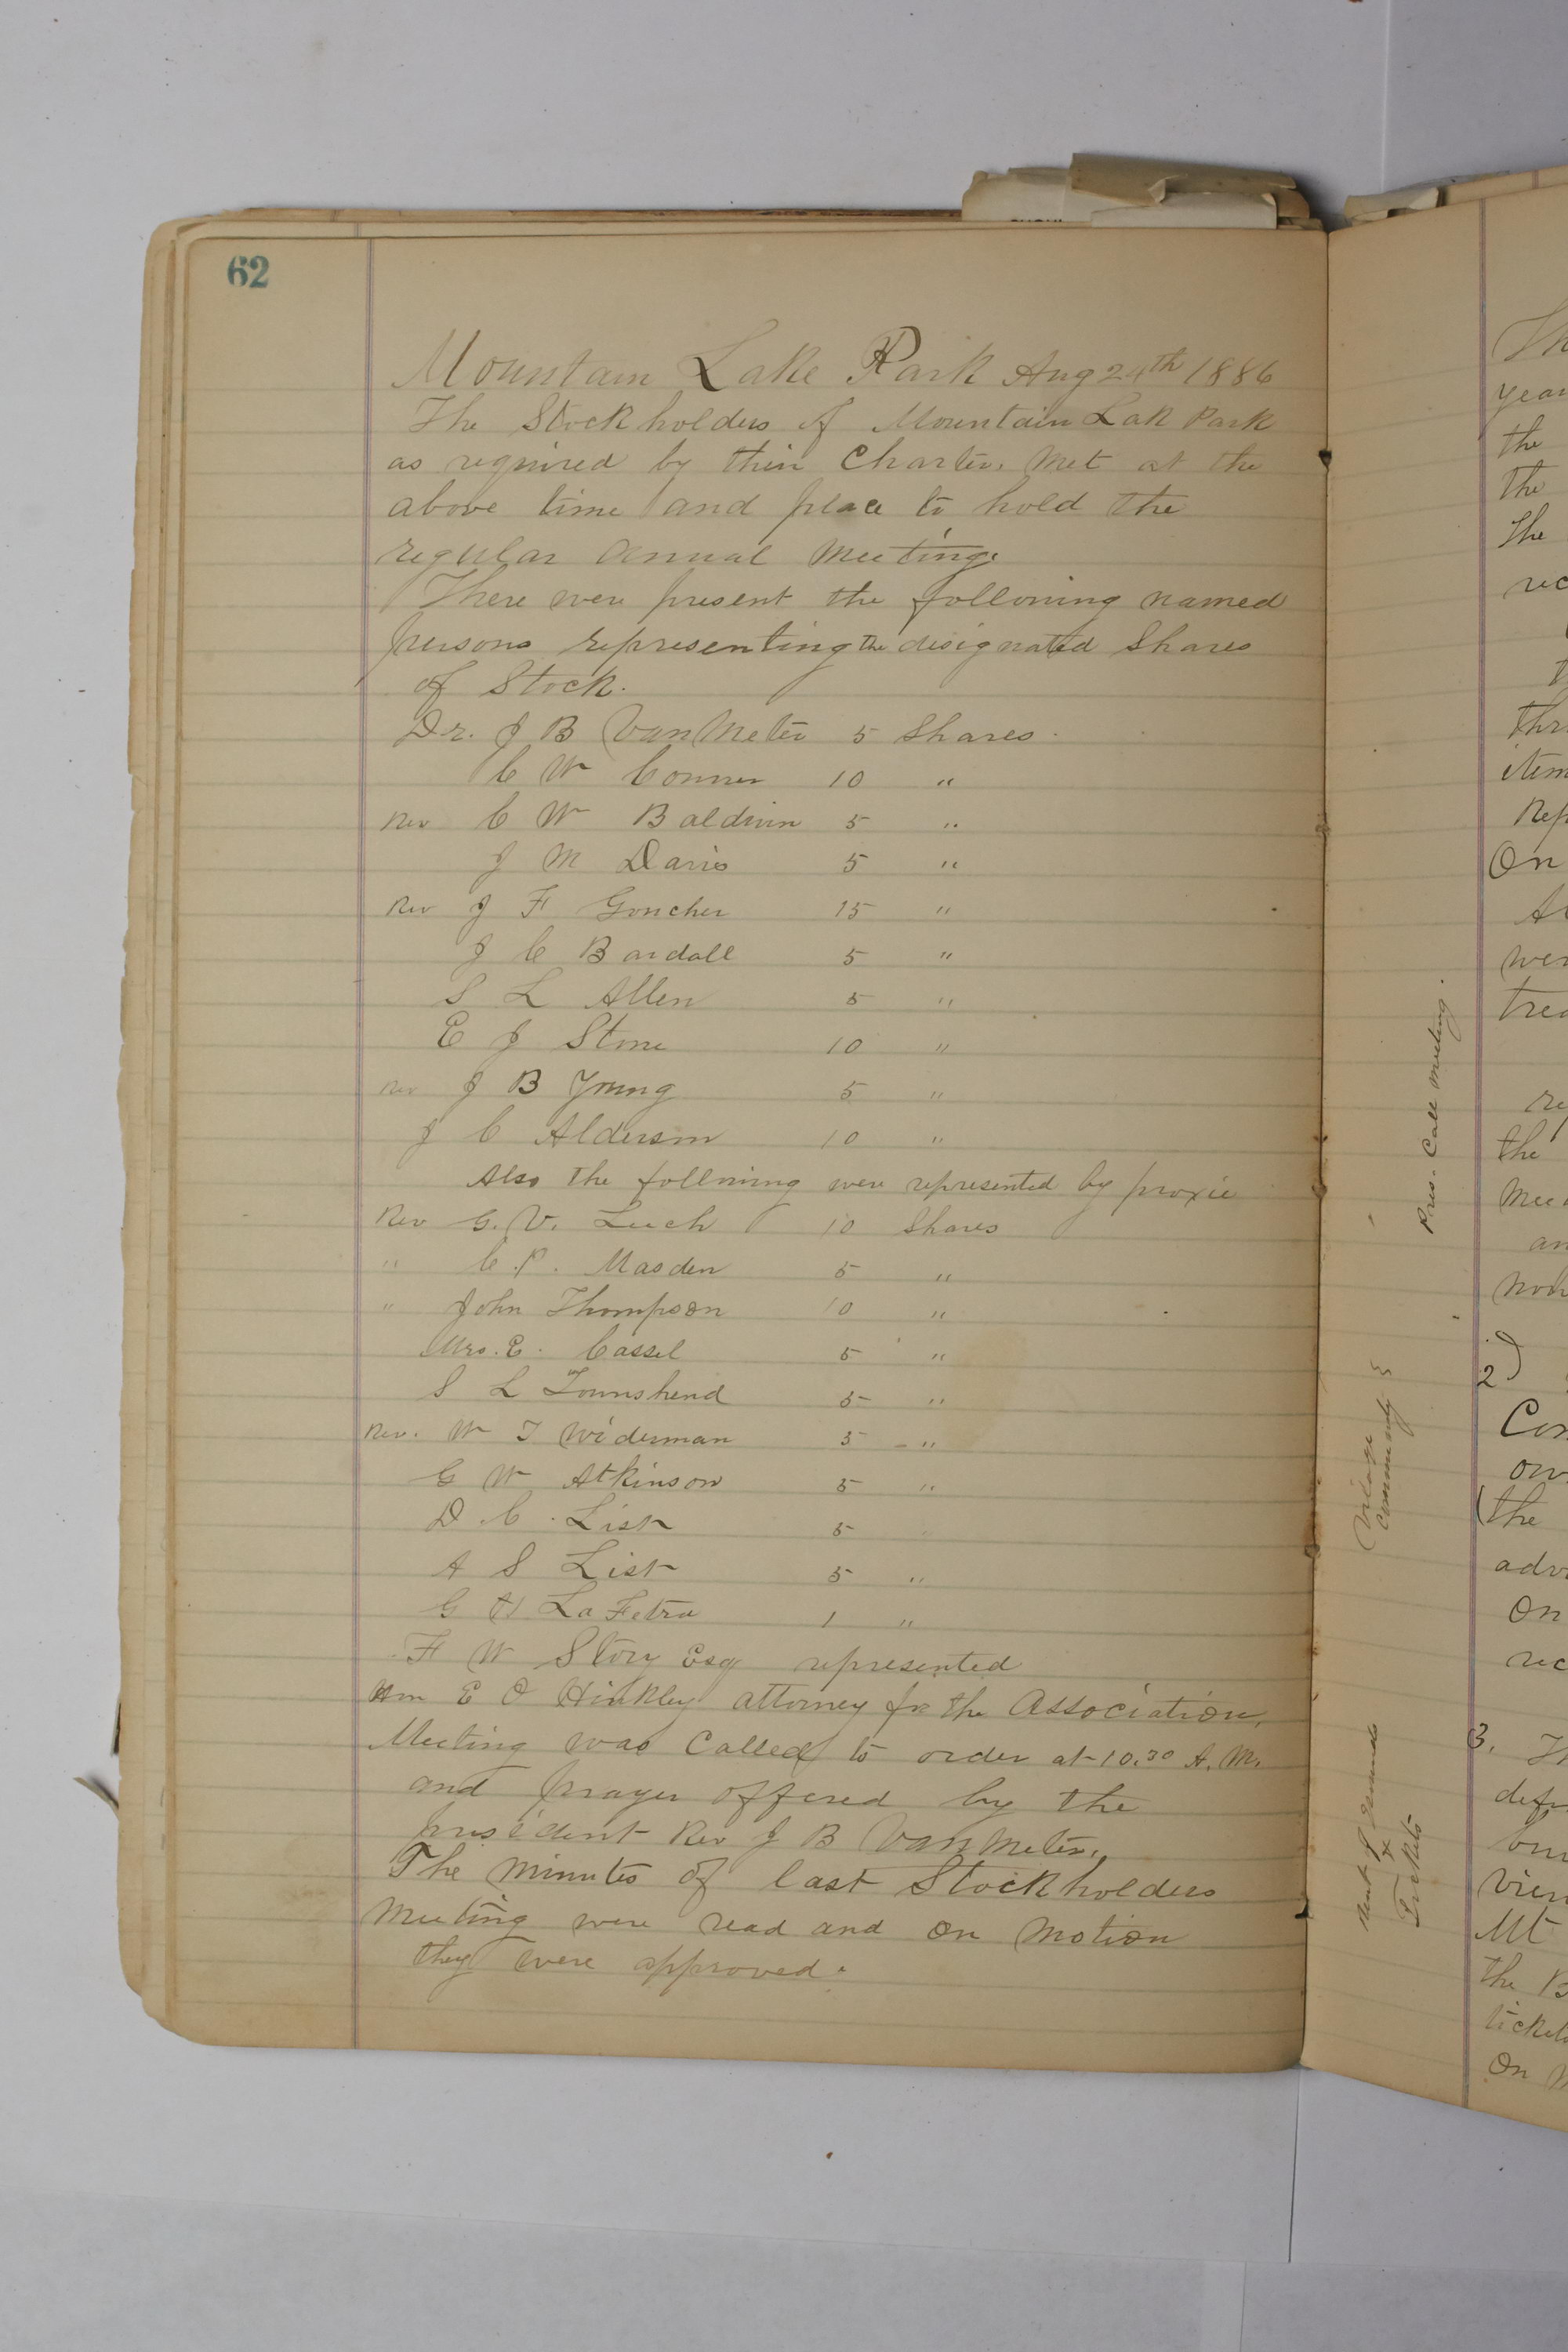 62
Mountain Lake Park Aug 24th 1886
The Stockholders of Mountain Lak Park
as required by thier Charter. Met at the
above time and place to hold the
regular annual meeting.
There were present the following named
persons representing the designated Shares
of Stock.
Dr. J B Van Meter 5 Shares.
C W Conner 10 "
Rev C W Baldwin 5 "
J M Davis 5 "
Rev J F Goucher 15 "
J C Bardall 5 "
S L Allen 5 "
E J Stone 10 "
Rev J B Young 5 "
J C Alderson 10 "
Also the following were represented by proxie
Rev G. V. Leech 10 Shares
" C. P. Masden 5 "
" John Thompson 10 "
Mrs. E. Cassel 5 "
S L Townshend 5 "
Rev. W T Widerman 5 "
G W Atkinson 5 "
D. C. List 5 "
A S List 5 "
G H La Fetra 1 "
F W Story Esq represented
Hon E O Hinkley attorney for the Association,
Meeting was Called to order at 10.30 A. M.
and prayer offered by the
president Rev J B Van Meter.
The minutes of last Stockholders
Meeting were read and on motion
they were approved.
Th
year
the
the
the
rec
thr
item
Rep
On
wer
trea
re
the
Mee
an
non
2)
Com
ow
(the
adv
On
rec
3. Th
defi
vien
Mt
the B
tickets
On m
Pres. Call meeting.
Village
Community
Rent of Grounds
&
Tickets